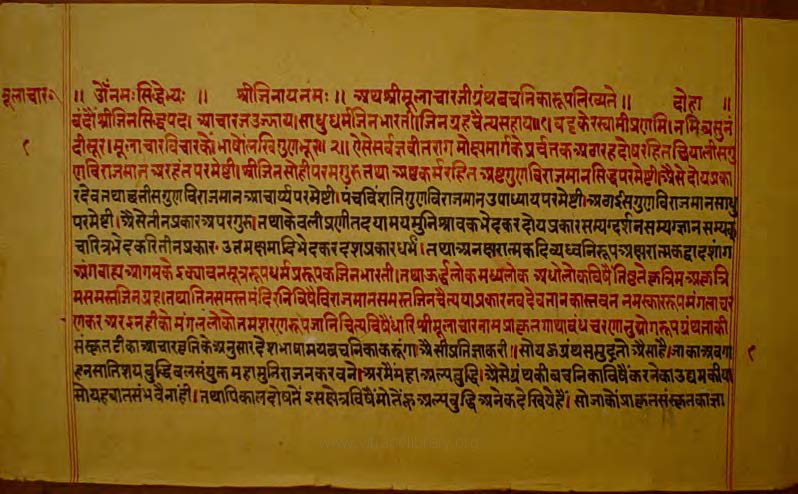 मूलाचार॰ ॥ ॐनमःसिद्धेभ्यः ॥ श्रीजिनायनमः ॥ अथश्रीमूलाचारजीग्रंथबचनिकारूपलिख्यते ॥ दोहा ॥
बंदौंश्रीजिनसिद्धपद। आचारजउवझाय। साधुधर्मजिनभारती। जिनग्रहचैत्यसहाय॥१॥ वट्टकेरस्वामीप्रणमि। नमि
१ दीसूर। मूलाचारविचारकें भाषोंलखिगुणभूर॥ २॥ ऐसेसर्वज्ञवीतराग मोक्ष्यमार्गकेप्रर्वत्तक अठारहदोषरहितछियालीसगु
णविराजमानअरहंतपरमेष्टी। श्रीजिनसोहीपरमगुरु तथा अष्टकर्मरहित अष्टगुणविराजमानसिद्धपरमेष्टी। अैसेदोयप्रका
रदेव तथाछत्तीसगुणविराजमानआचार्य्यपरमेष्टी। पंचविंशतिगुणविराजमानउपाध्यायपरमेष्टी। अठाईसगुणविराजमानसाधु
परमेष्टी। अैसेतीनप्रकारअपरगुरु। तथाकेवलीप्रणीतदयामयमुनिश्रावकभेदकरदोयप्रकारसम्यग्दर्शनसम्यग्ज्ञानसम्यक्
चारित्रभेदकरितीनप्रकार। उत्तमक्षमादिभेदकरदशप्रकारधर्म। तथाअनक्षरात्मकदिव्यध्वनिरूपअक्षरात्मकद्वादशांग
अंगबाह्यआगमके सूत्ररूपधर्मप्ररूपकजिनभारती। तथाऊर्द्धलोकमध्यलोक अधोलोकविषैतिष्ठतेकृत्रिमअकृत्रि
मसमस्तजिनग्रह। तथाजिनसमस्तमंदिरनिविषैविराजमानसमस्तजिनचैत्य याप्रकारनवदेवतानकास्तवन नमस्काररूपमंगलाचर
णकर अर इनहीकोमंगललोकोत्तमशरणरूपजानिचित्यविषैधारि श्रीमूलाचारनामप्राकृतगाथाबंधचरणानुयोगरूपग्रंथताकी
संस्कृतटीकाआचारवृत्तिकेअनुसारदेशभाषामयबचनिकाकरूंगा। अैसीप्रतिज्ञाकरी॥ सोयऊग्रंथसमुद्रतो अैसाहै। जाकाअवगा १
हनसातिशयबुद्धिबलसंयुक्तमहामुनिराजनकरबने। अरमैंमहाअल्पबुद्धि। अैसेग्रंथकीबचनिकाविषैंकरनेकाउद्यमकीया
सोयहबातसंभवैनांही। तथापिकालदोषतें इसक्षेत्रविषैंमोतेंहूअल्पबुद्धिअनेकदेखियेहैं। सोजाकोंप्राकृतसंस्कृतकाज्ञा